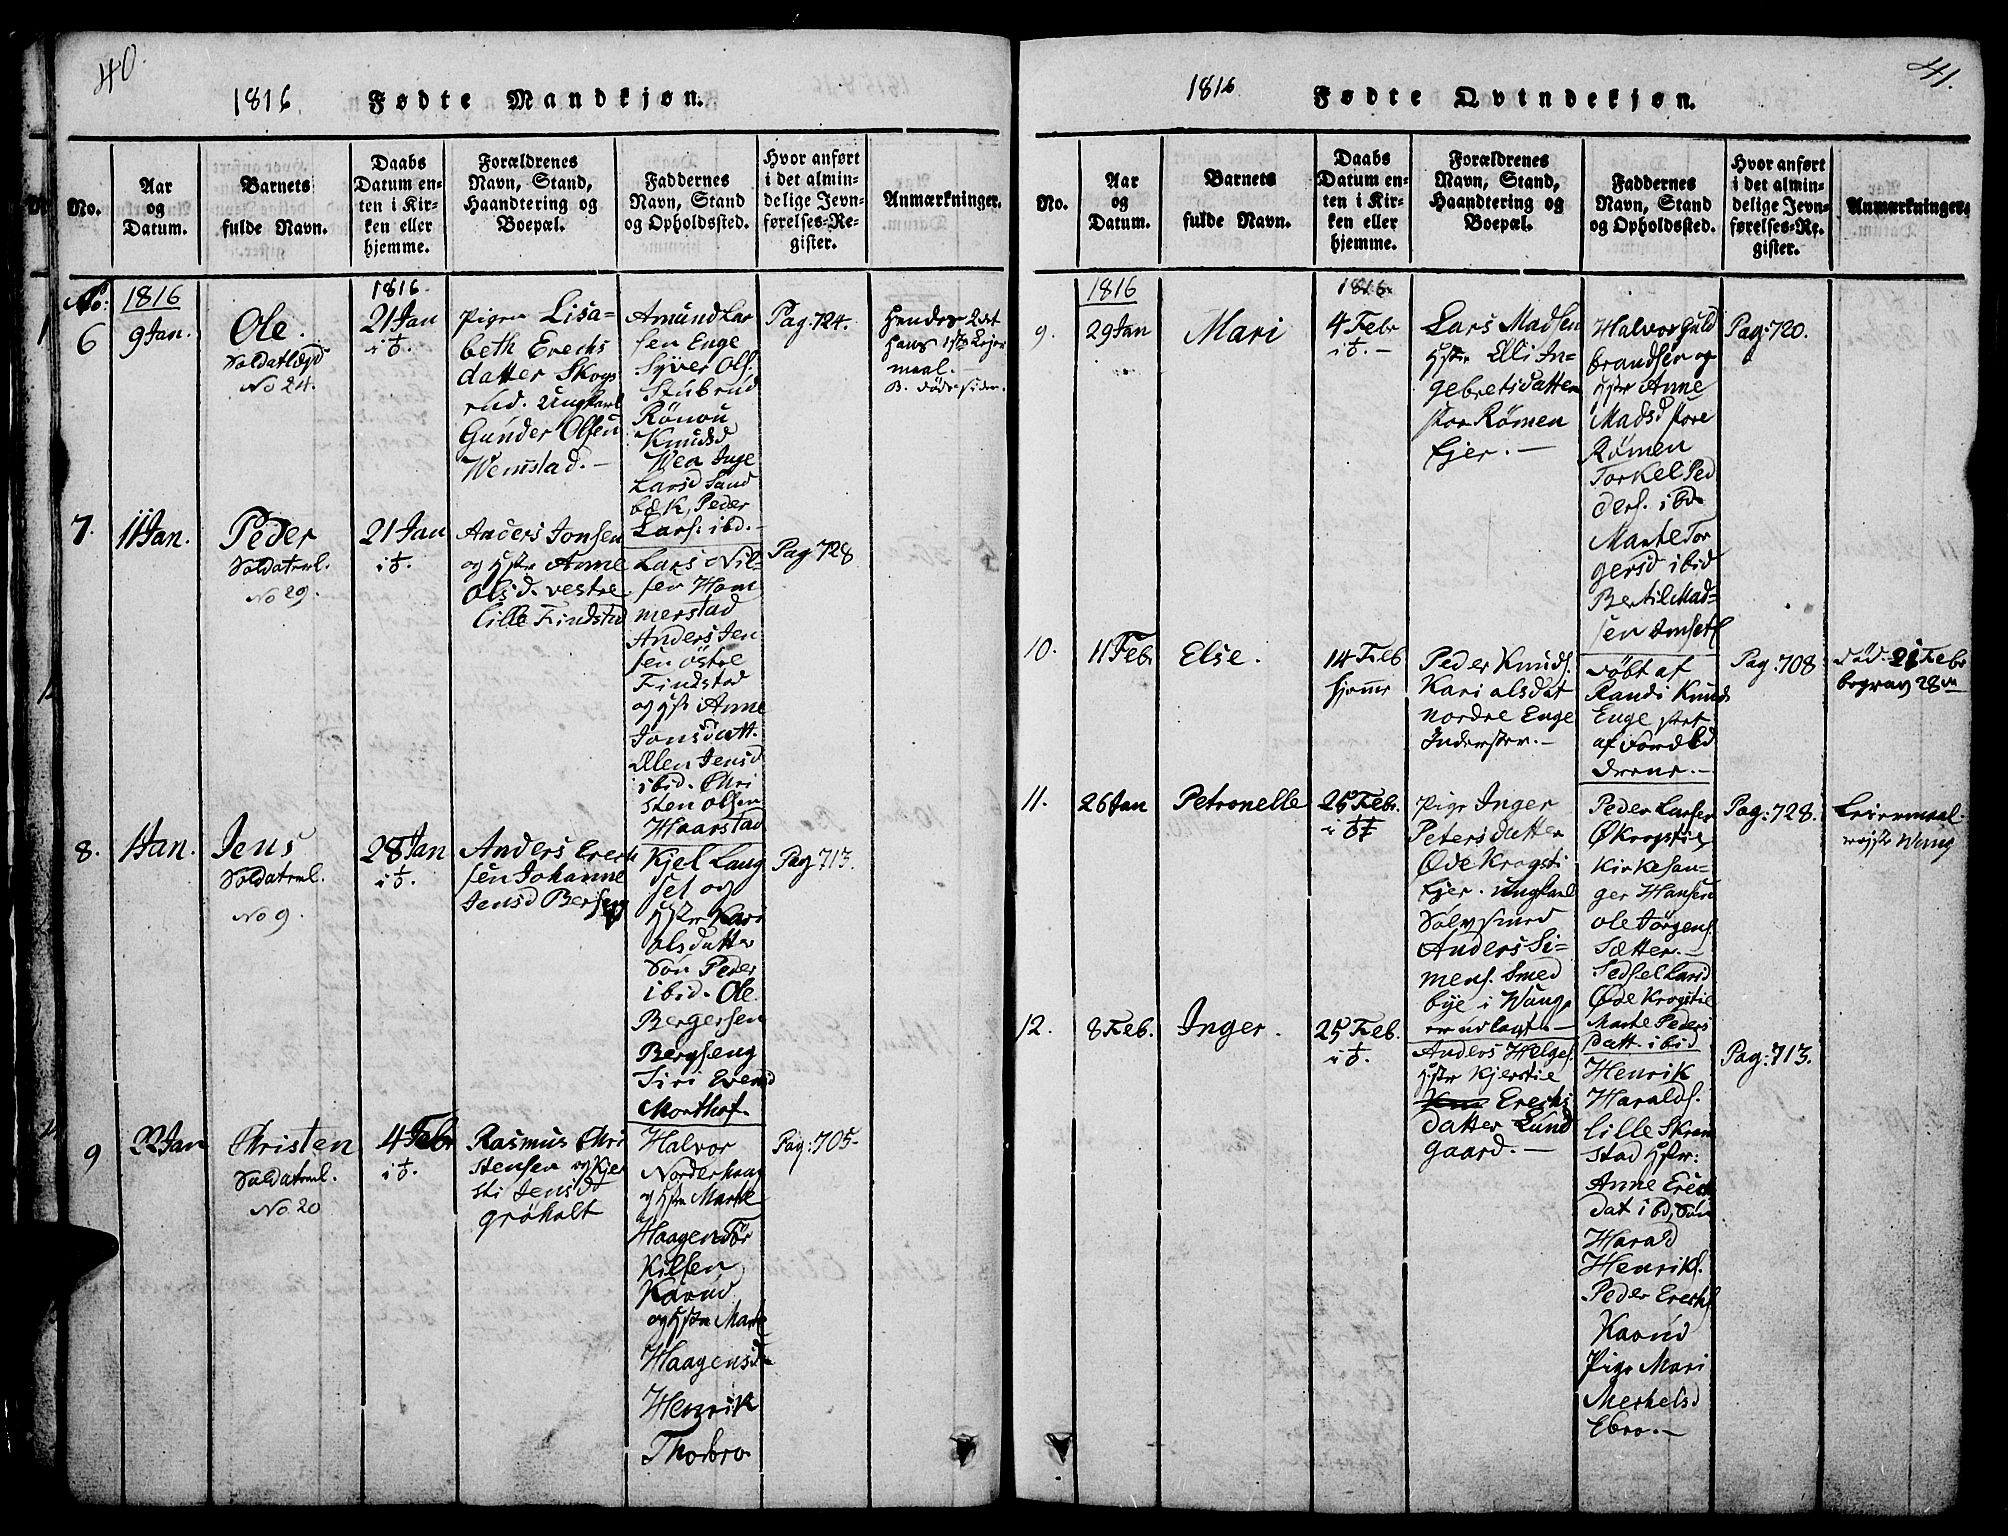 40.
1816. Fødte Mandkjøn.
No.
Aar
og
Datum.
Barnets
fulde Navn.
Daabs
Datum en-
ten i Kir-
ken eller
hjemme.
Forældrenes
Navn, Stand,
Haandtering og
Boepæl.
Faddernes
Navn, Stand
og Opholdssted.
Hvor anført
i det almin-
delige Jevn-
førelses-Re-
gister.
Anmærkninger.
No:
6
1816
9 Jan.
Ole.
Soldatlægd
No 24.
1816.
21 Jan
i K.
Pigen Lisa-
beth Erechs
datter Skogs
rud. Ungkarl
Gunder Olsen
Wemstad.-
Amund Lar
sen Enge
Syver Ols.
Stubrud
Rönou
Knudsd
Wea Inge
Larsd Sand
bæk, Peder
Lars: ibd.-
Pag: 724.
Hendes 2det
Hans 1ste Lejer
maal.-
7.
11 Jan.
Peder
Soldatrul.
No 29.
21 Jan
i K.
Anders Jonsen
og Hstr Anne
Olsd. vestre
Lille Findstad
Lars Nil-
sen Ham
merstad
Anders Jen
sen östre
Findstad
og Hstr Anne
Jonsdatt.
Ellen Jensd
ibid. Chri
sten Olsen
Haarstad
Pag 728
8.
1 Jan.
Jens
Soldatrul.
No 9.
28 Jan
i K.
Anders Erech
sen Johanne
Jensd Berseng
Kjel Lang
set og
Hstr Kari
Olsdatter
Sön Peder
ibid. Ole
Bergersen
Bergseng
Siri Evensd
Morthof.
Pag 713.
9
22 Jan
Christen
Soldatrul.
No 20
4 Febr
i K.
Rasmus Chri
stensen og Kjer
sti Jensd
Gröholt
Halvor
Norderhaug
og Hstr Marte
Haagen Tor
Kilsen
Karud
og Hstr Marte
Haagensd
Henrik
Thorbro.
Pag: 705-
41.
1816 Fødte Qvindekjøn.
No.
Aar
og
Datum.
Barnets
fulde Navn.
Daabs
Datum en-
ten i Kir-
ken eller
hjemme.
Forældrenes
Navn, Stand,
Haandtering og
Boepæl.
Faddernes
Navn, Stand
og Opholdssted.
Hvor anført
i det almin-
delige Jevn-
førelses-Re-
gister.
Anmærkninger.
9.
1816
29 Jan
Mari
1816.
4 Febr
i K.-
Lars Madsen
Hstr Elli In-
gebretsdatter
stor Römen
Ejer.-
Halvor Guld
brandsen og
Hstr Anne
Madsd store
Römen
Torkel Ped
ders. ibd
Marte Tor
gersd ibid
Bertil Mad-
sen Imset
Pag: 720.
10.
11 Febr
Else.
14 Feb
hjemme
Peder Knuds.
Kari Olsdat
nordre Enge
Inderster.-
Döbt af
Randi Knuds
Enge
af Foræld
drene.-
Pag: 708
död 21 Febr
begrav 28de
11.
26 Jan
Petronelle
25 Febr.
i K
Pige Inger
Petersdatter
Öde Krogsti
Ejer. Ungkarl
Sølvsmed
Anders Si-
mens. Smed
bye i Wang
er udlagt.-
Peder Larsen
Ö Krogstie
Kirkesan-
ger Hansen
Ole Jörgens.
Sætter.-
Sedsel Larsd
Öde Krogstie
Marte Peders
datt. ibid
Pag: 728.
Leiermaal.
Wang
12.
8 Feb.
Inger.
25 Feb.
i K.
Anders Helges.
Hstr Kjerstie
Erechs
datter Lund
gaard.-
Henrik
Haralds.
Lille Skram
stad Hstr:
Anne Erech
dat ibd, Sön
Harald
Henriks.
Peder Erechs.
Karud
Pige Mari
Merkelsd
Ebro.-
Pag: 713.